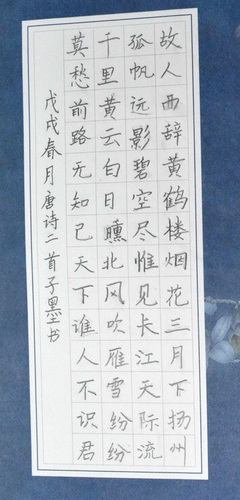 故人西辞黄鹤楼烟花三月下扬州
孤帆远影碧空尽惟见长江天际流
千里黄云白日曛北风吹雁雪纷纷
莫愁前路无知己天下谁人不识君
戊戌春月唐诗二首子墨书